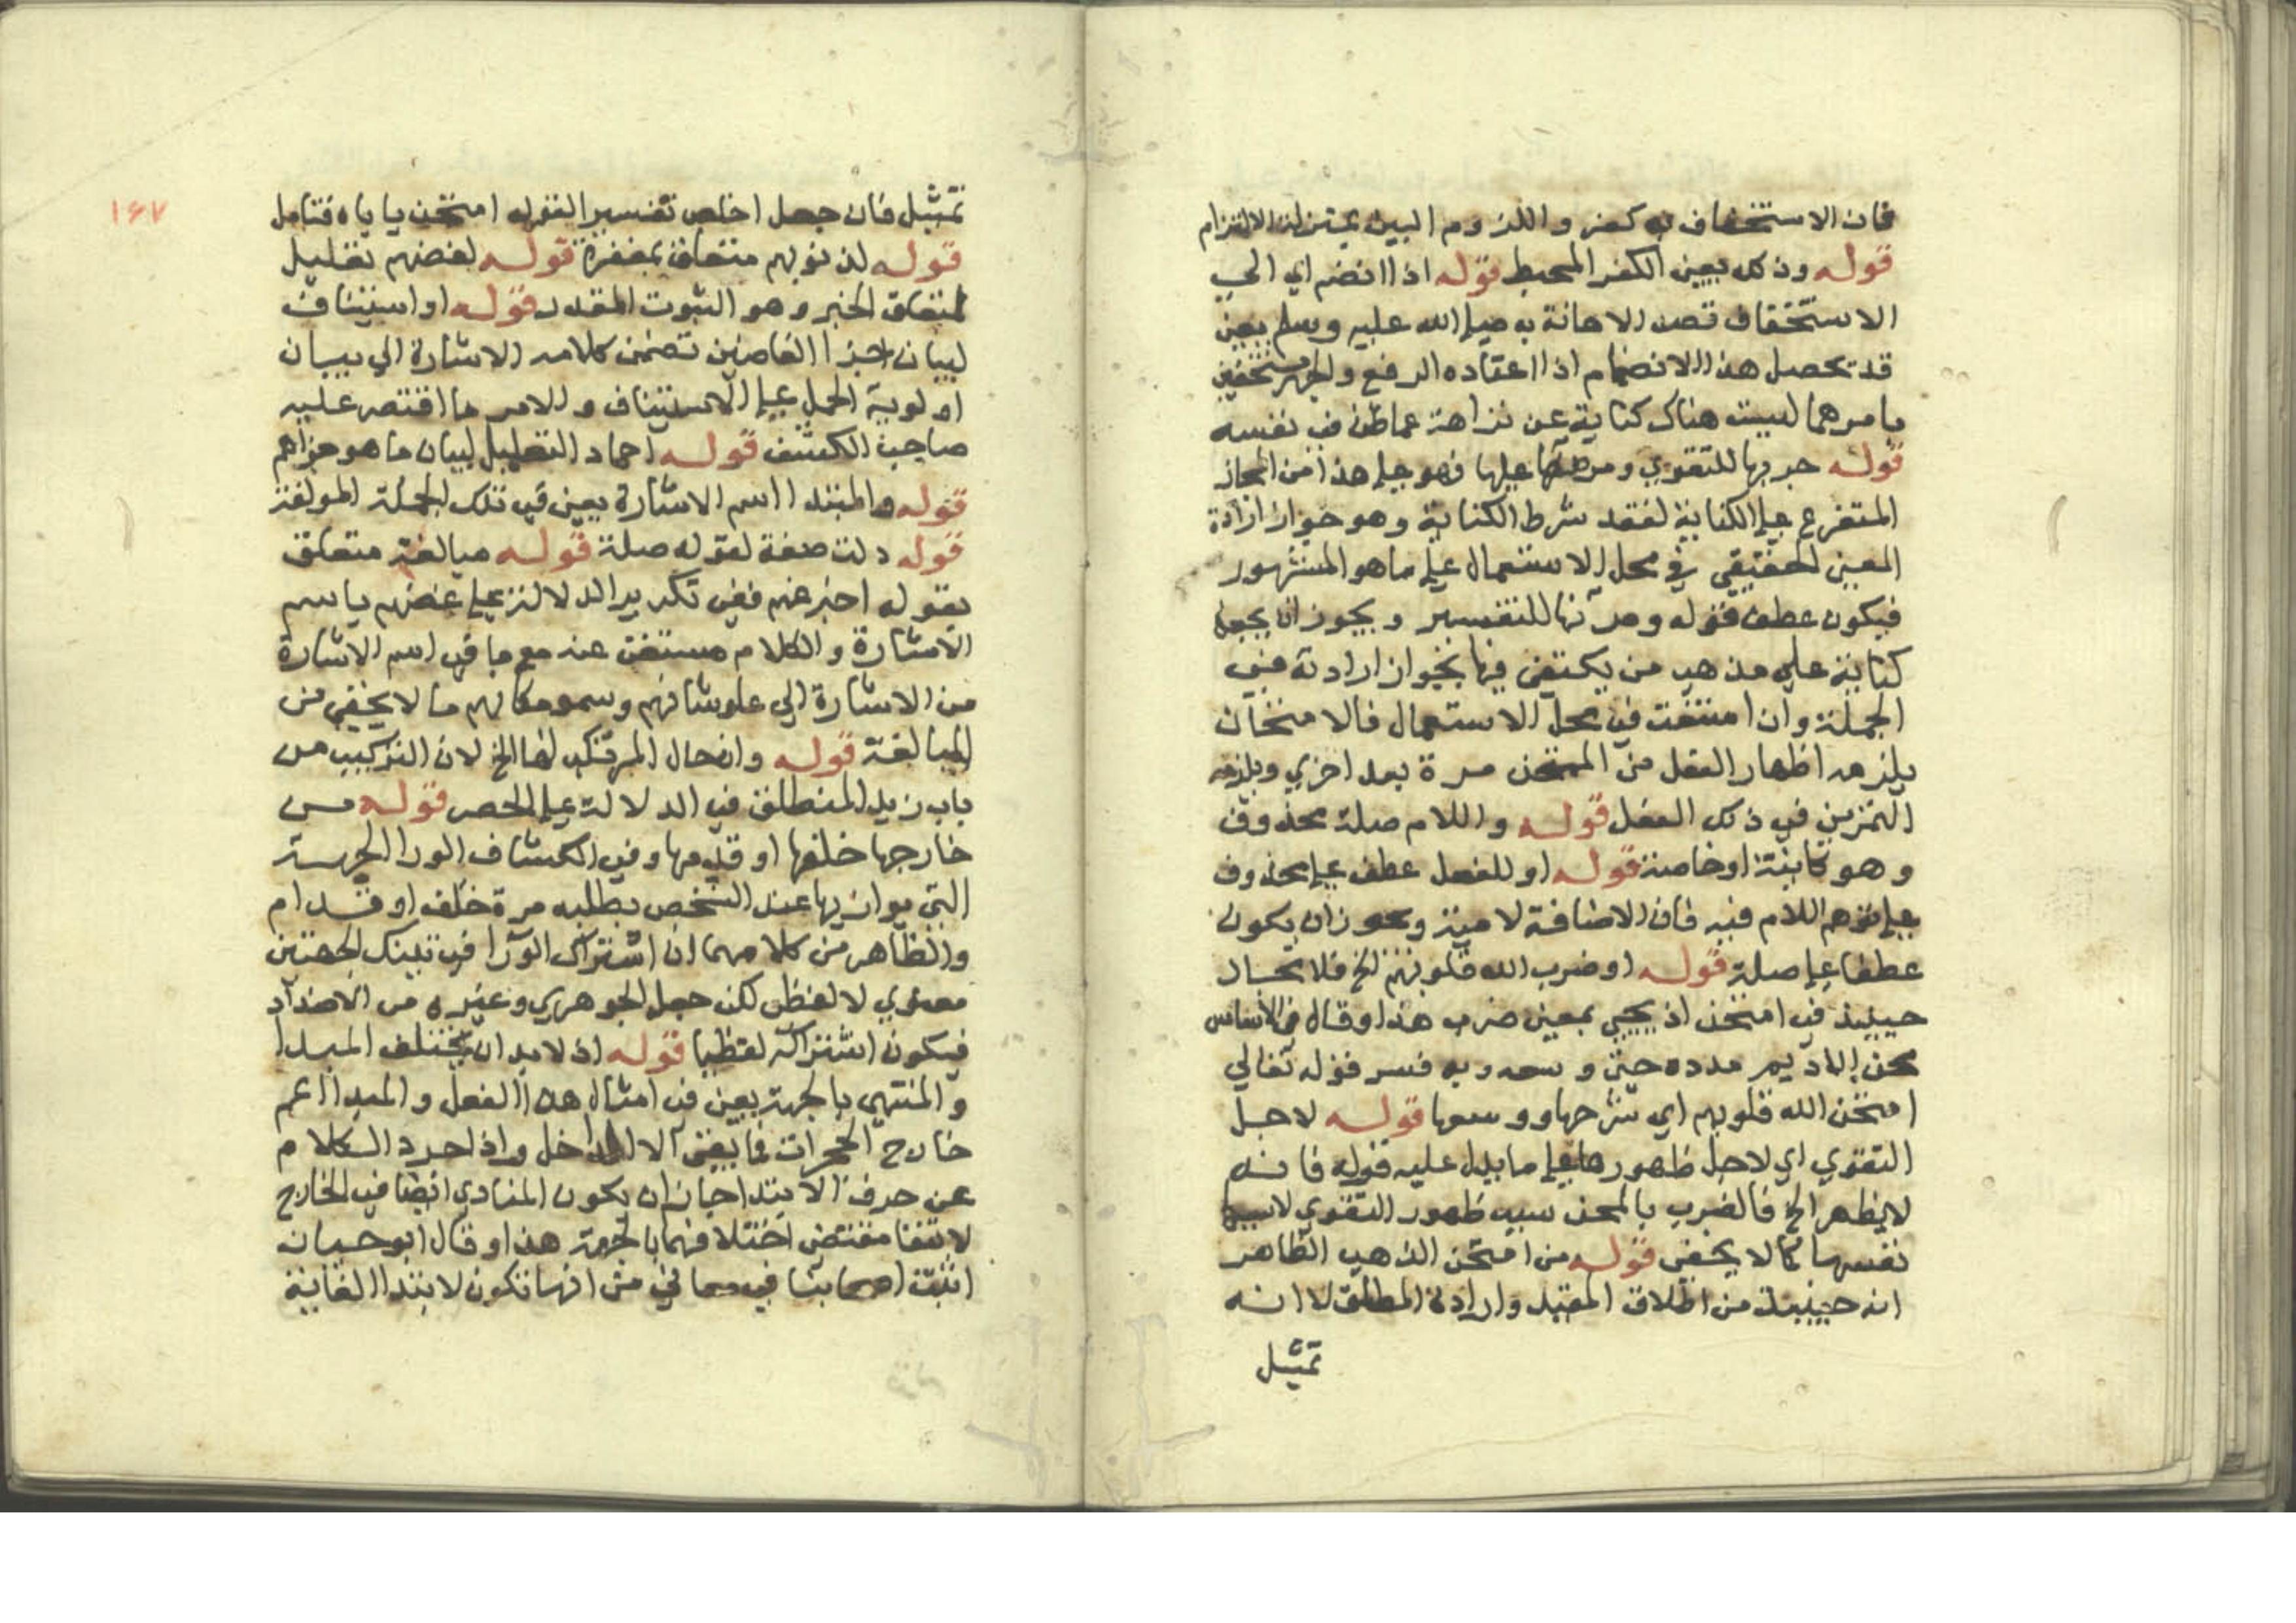 فان الاستخفاف به كفر واللزوم البين بمنزلة الالتزام
قوله وذلك يعني الكفر المحبط قوله اذا انضم اي الي
الاستخفاف قصد الاهانة به صلي الله عليه وسلم يعني
قد تحصل هذا الانضمام اذا اعتاده الرفع والجهر مستخفين
بامرهما ليست هناك كناية عن نزاهة عما ظن في نفسه
قوله جربها للتقوي ومرنها عليها فهو علي هذا من المجاز
المتفرع علي الكناية لفقد شرط الكناية وهو جواز ارادة
المعني الحقيقي في محل الاستعمال علي ما هو المشهور
فيكون عطف قوله ومرنها للتفسير ويجوز ان يجعل
كناية علي مذهب من يكتفي فيها بجواز ارادته في
الجملة وان امتنعت في محل الاستعمال فالامتحان
يلزمه اظهار الفعل من الممتحن مرة بعد اخري ويلزمه
التمرين في ذلك الفعل قوله واللام صلة محذوف
وهو كاينة او خاصة قوله او للفعل عطف علي محذوف
علي توهم اللام فيه فان الاضافة لامية ويجوز ان يكون
عطفا علي صلة قوله او ضرب الله قلوبهم الخ فلا مجاز
حينيذ في امتحن اذ يجيي بمعني ضرب هذا وقال في الاساس
محن الاديم مدده حتي وسعه وبه فسر قوله تعالي
امتحن الله قلوبهم اي شرحها ووسعها قوله لاجل
التقوي اي لاجل ظهورها علي ما يدل عليه قوله فانه
لا يظهر الخ فالضرب بالمحن سبب ظهور التقوي لا سببها
نفسها كما لا يخفي قوله من امتحن الذهب الظاهر
انه حينيذ من اطلاق المقيد وارادة المطلق لا انه
تمثيل
١٦٧
تمثيل فان جعل اخلص تفسيرا لقوله امتحن ياباه فتامل
قوله لذنوبهم متعلق بمغفرة قوله لغضهم تعليل
لمتعلق الخبر وهو الثبوت المقدر قوله او استيناف
لبيان جزا الغاضين تضمن كلامه الاشارة الي بيان
اولوية الحمل علي الاستيناف وللامر ما اقتصر عليه
صاحب الكشف قوله احماد التعليل لبيان ما هو جزاهم
قوله والمبتدا اسم الاشارة يعني في تلك الجملة المولفة
قوله دلت صفة لقوله صلة قوله مبالغة متعلق
بقوله اخبر عنهم ففي تكرير الدلالة علي غضهم باسم
الاشارة والكلام مستغن عنه مع ما في اسم الاشارة
من الاشارة الي علو شانهم وسمو مكانهم ما لا يخفي من
المبالغة قوله وان حال المرتكب لها الخ لان التركيب من
باب زيد المنطلق في الدلالة علي الحصر قوله من
خارجها خلفها او قدمها وفي الكشاف الورا الجهة
التي يواريها عنك الشخص بظلبه مرة خلف او قدام
والظاهر من كلامهما ان اشتراك الورا في تينك الجهتين
معنوي لا لفظي لكن جعل الجوهري وغيره من الاضداد
فيكون اشتراكه لفظيا قوله اذ لابد ان يختلف المبدا
والمنتهي بالجهة يعني في امثال هذا الفعل والمبدا عم
خارج الحجرات فما بقي الا الداخل واذا جرد الكلام
عن حرف الابتدا جاز ان يكون المنادي ايضا في الخارج
لانتفا مقتضي اختلافهما بالجهة هذا وقال ابو حيان
اثبت اصحابنا في معاني من انها تكون لابتدا الغاية